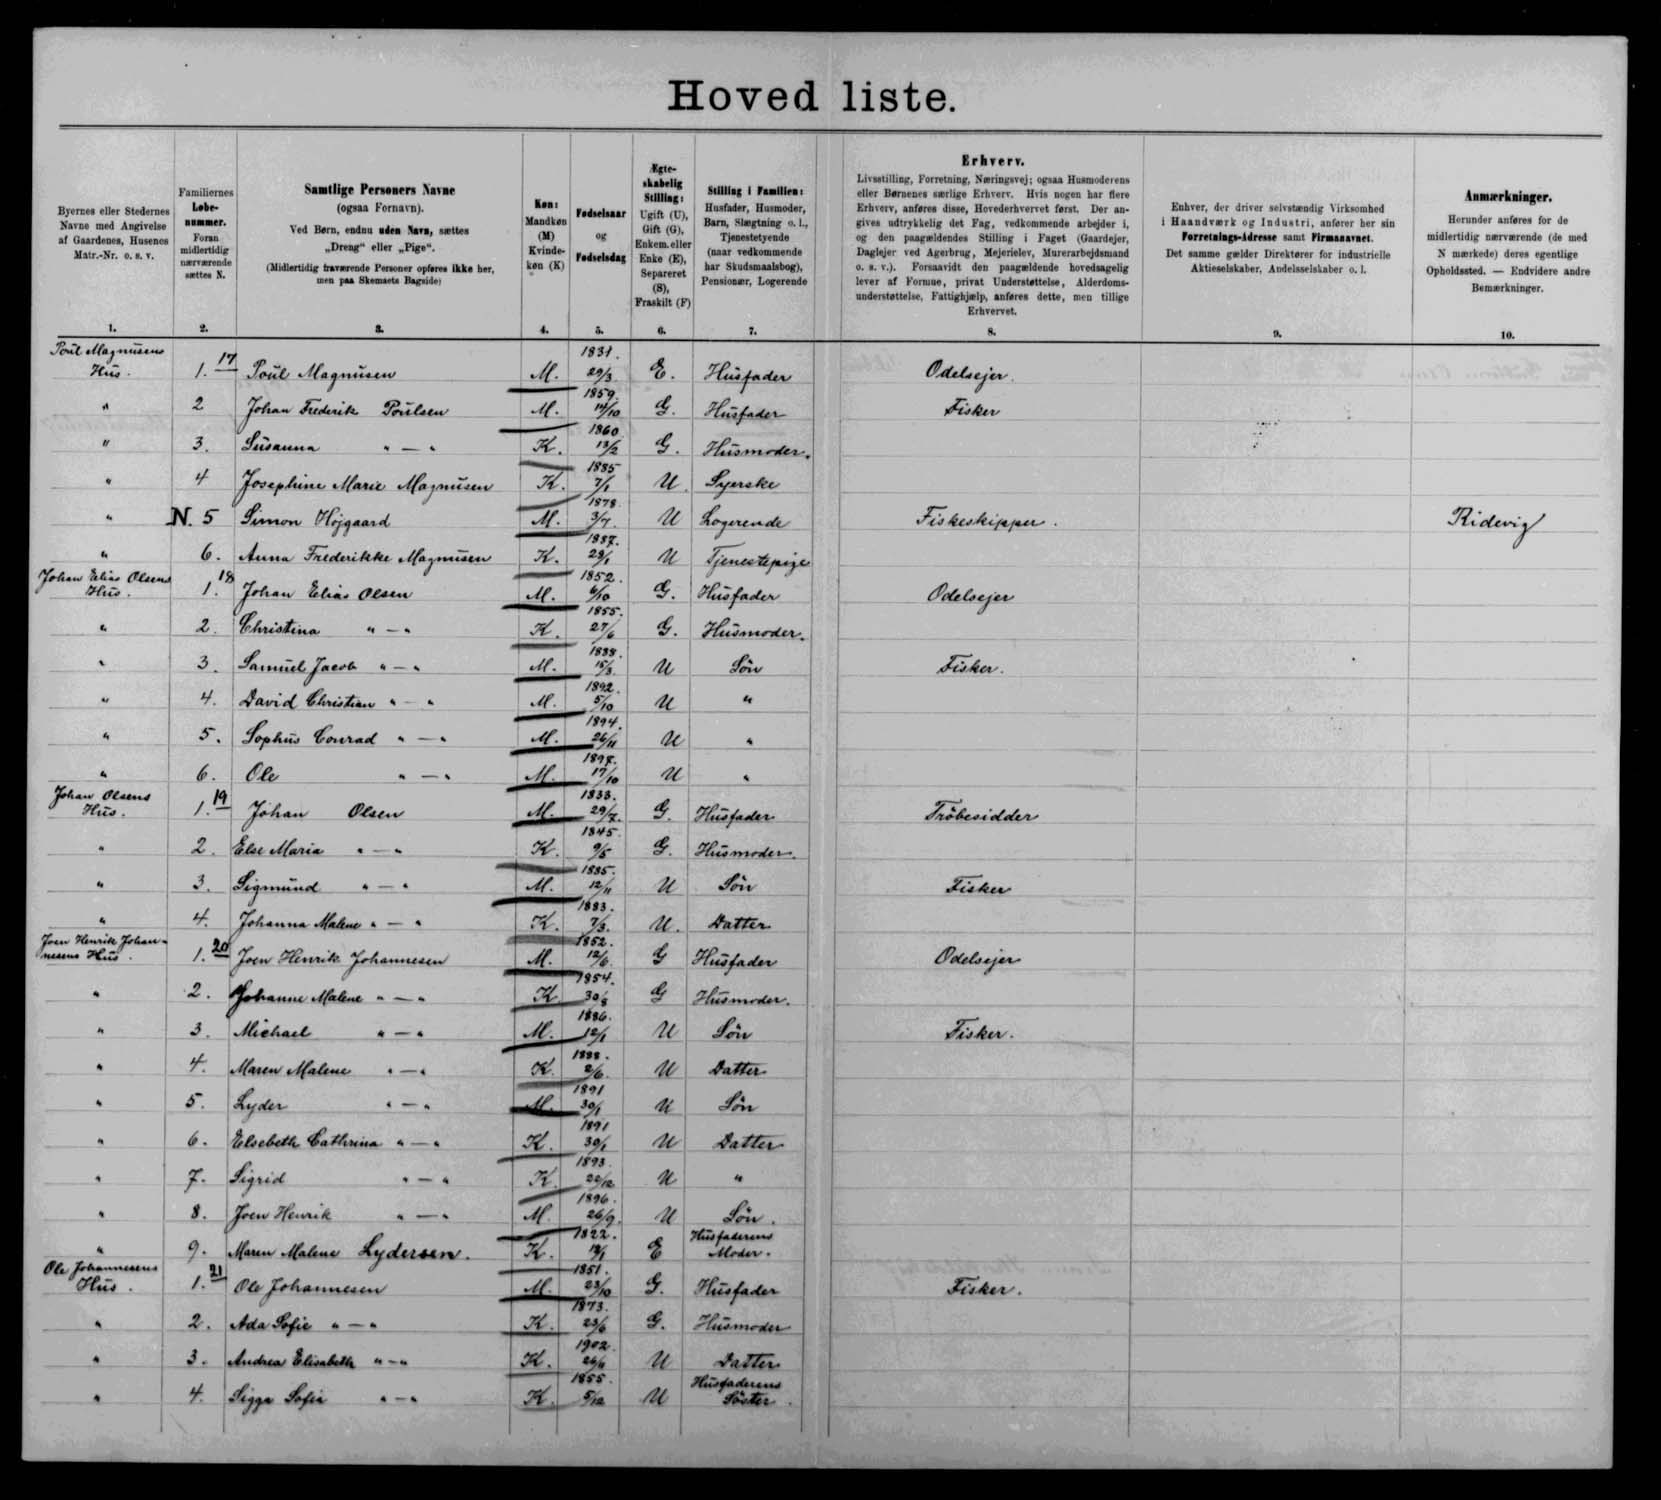 Hoved liste.
Byernes eller Stedernes Navne med Angivelse af Gaardenes, Husenes Matr.-Nr. o. s. v.
1.
Familiernes Løbe-nummer. Foran midlertidig nærværende sættes N.
2.
Samtlige Personers Navne
(ogsaa Fornavn).
Ved Børn, endnu uden Navn, sættes „Dreng“ eller „Pige“.
(Midlertidig fraværende Personer opføres ikke her, men paa Skemaets Bagside)
3.
Køn: Mandkøn (M) Kvinde-køn (K)
4.
Fødselsaar og Fødselsdag
5.
Ægte-skabelig Stilling: Ugift (U), Gift (G), Enkem. eller Enke (E), Separeret (S), Fraskilt (F)
6.
Stilling i Familien: Husfader, Husmoder, Barn, Slægtning o. l., Tjenestetyende (naar vedkommende har Skudsmaalsbog), Pensionær, Logerende
7.
Erhverv.
Livsstilling, Forretning, Næringsvej; ogsaa Husmoderens eller Børnenes særlige Erhverv. Hvis nogen har flere Erhverv, anføres disse, Hovederhvervet først. Der an-gives udtrykkelig det Fag, vedkommende arbejder i, og den paagældendes Stilling i Faget (Gaardejer, Daglejer ved Agerbrug, Mejerielev, Murerarbejdsmand o. s. v.). Forsaavidt den paagældende hovedsagelig lever af Formue, privat Understøttelse, Alderdoms-understøttelse, Fattighjælp, anføres dette, men tillige Erhvervet.
8.
Enhver, der driver selvstændig Virksomhed i Haandværk og Industri, anfører her sin Forretnings-Adresse samt Firmanavnet. Det samme gælder Direktører for industrielle Aktieselskaber, Andelsselskaber o. l.
9.
Anmærkninger.
Herunder anføres for de midlertidig nærværende (de med N mærkede) deres egentlige Opholdssted. — Endvidere andre Bemærkninger.
10.
Poul Magnusens Hus. 17 1. Poul Magnusen M. 1831. 29/3 E. Husfader Odelsejer.
" 2 Johan Frederik Poulsen M. 1859. 14/10 G. Husfader Fisker
" 3. Susanna " — " K. 1860 13/2 G. Husmoder.
" 4 Josephine Marie Magnusen K. 1885 7/1 U. Syerske
" N. 5 Simon Højgaard M. 1878. 3/7. U Logerende Fiskeskipper. Ridevig
" 6. Anna Frederikke Magnusen K. 1887. 28/1 U Tjenestepige
Johan Elias Olsens Hus. 18 1. Johan Elias Olsen M. 1852. 6/10 G. Husfader Odelsejer
" 2. Christina " — " K. 1855. 27/6 G. Husmoder.
" 3. Samuel Jacob " — " M. 1888. 15/3. U Søn Fisker.
" 4. David Christian " — " M. 1892. 5/10 U "
" 5. Sophus Conrad " — " M. 1894. 26/11 U "
" 6. Ole " — " M. 1897. 17/10 U "
Johan Olsens Hus. 19 1. Johan Olsen M. 1833. 29/7. G. Husfader Fröbesidder
" 2. Else Maria " — " K. 1845. 9/5 G. Husmoder.
" 3. Sigmund " — " M. 1885. 12/11 U Søn Fisker
" 4. Johanna Malene " — " K. 1883. 7/3. U. Datter
Joen Henrik Johan-nesens Hus. 20 1. Joen Henrik Johannesen M. 1852. 12/6. G Husfader Odelsejer
" 2. Johanne Malene " — " K 1854. 30/8 G Husmoder.
" 3. Michael " — " M. 1886. 12/1 U Søn Fisker.
" 4. Maren Malene " — " K. 1888. 2/6. U Datter
" 5. Lyder " — " M. 1891 30/1 U Søn
" 6. Elsebeth Cathrina " — " K. 1891 30/1 U Datter
" 7. Sigrid " — " K. 1893. 22/12 U "
" 8. Joen Henrik " — " M. 1896. 26/9. U Søn.
" 9. Maren Malene Lydersen. K. 1822. E Husfaderens Moder.
Ole Johannesens Hus. 21 1. Ole Johannesen M. 1851. 23/10 G. Husfader Fisker.
" 2. Ada Sofie " — " K. 1873. 23/6 G. Husmoder
" 3. Andrea Elisabeth " — " K. 1902. 26/11 U Datter
" 4. Sigga Sofia " — " K. 1855. 5/12 U Husfaderens Søster.